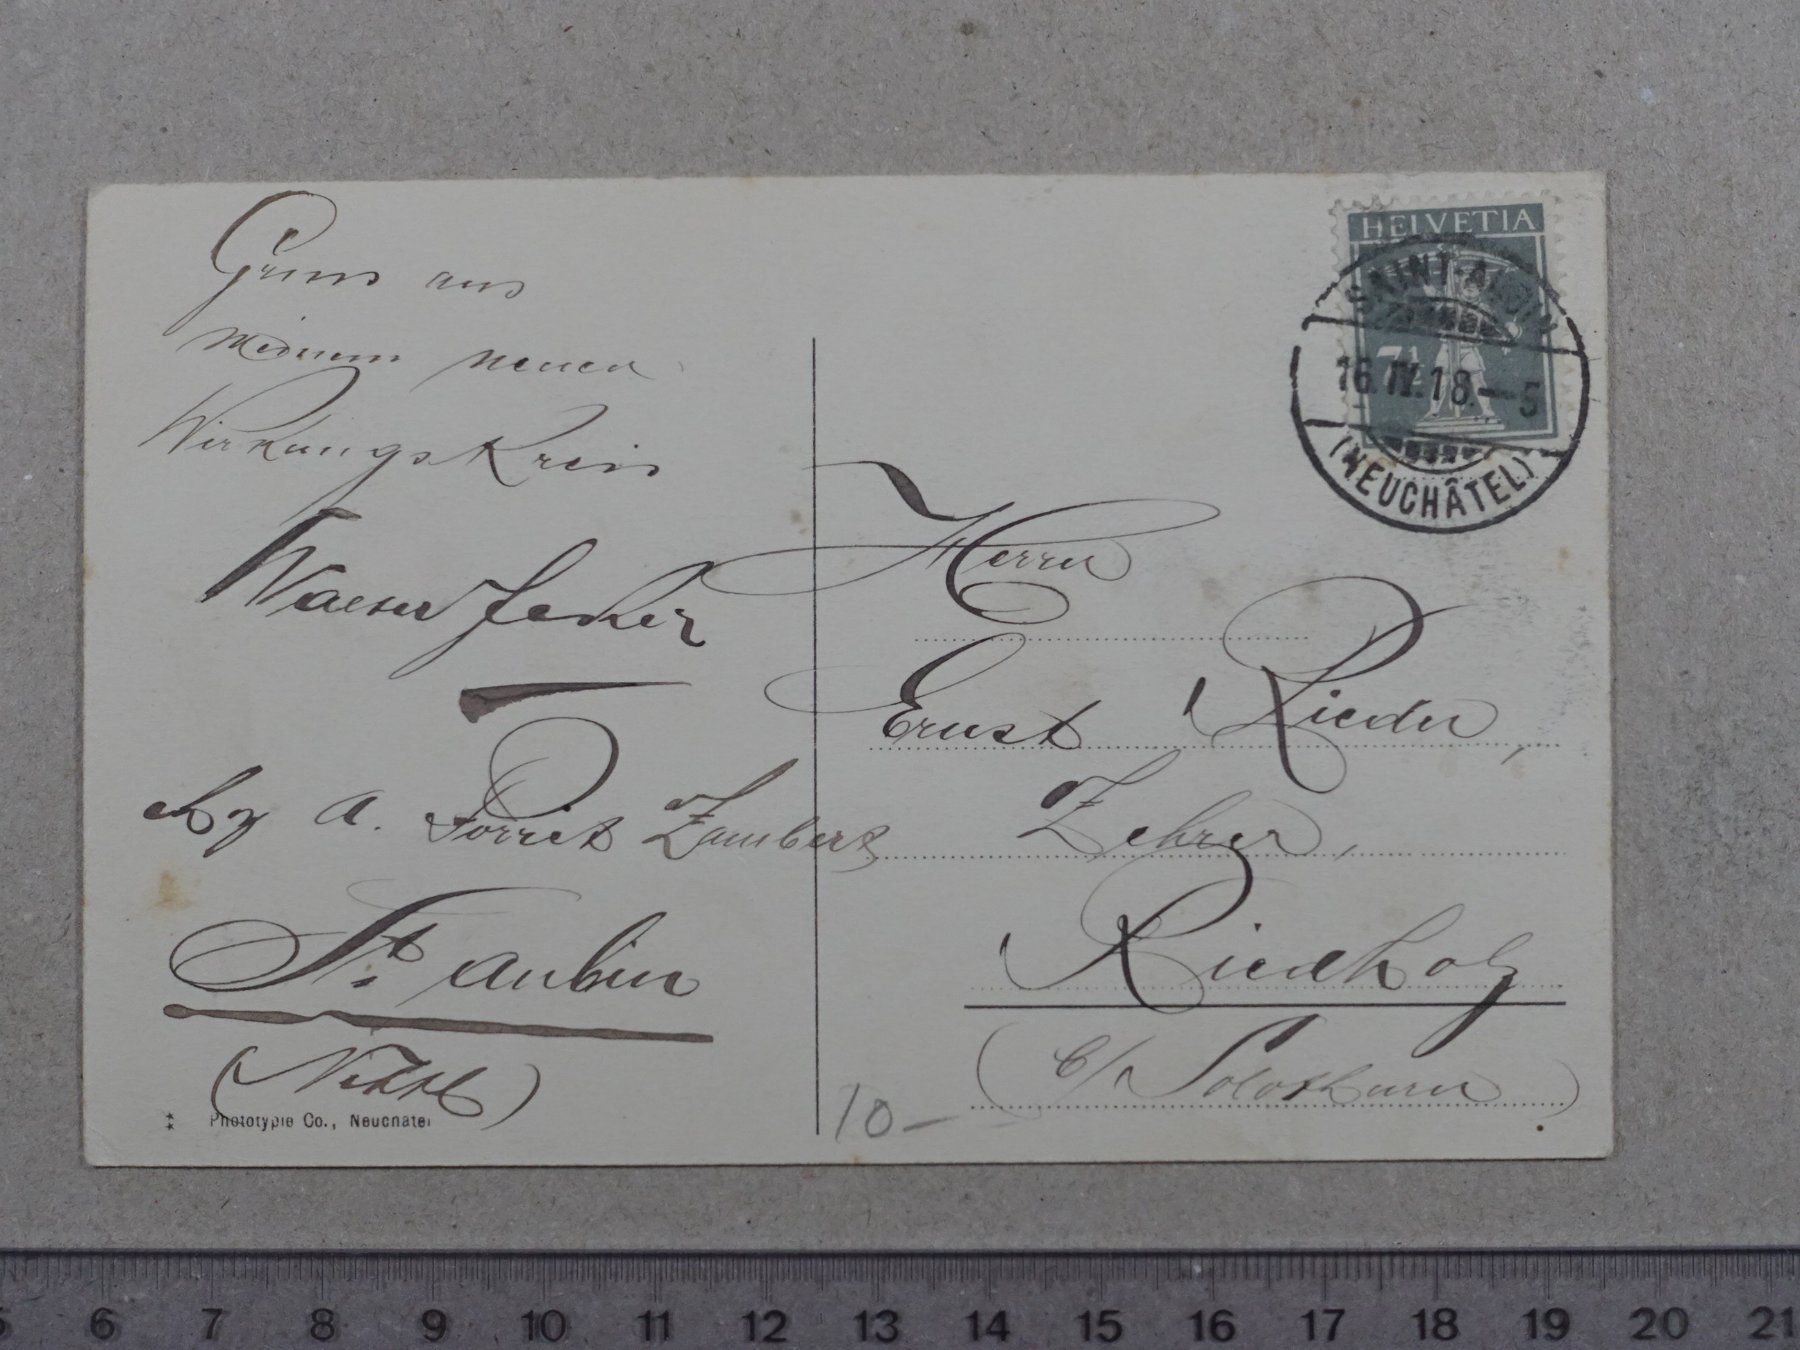 Gruss aus
meinem neuen
Wirkungskreis
Werner Jenker
A. Porret Zambert
St. Aubin
(Nchtl)
⁑ Phototypie Co., Neuchâtel
HELVETIA
7½
SAINT-AUBIN
16.IV.18.—5
(NEUCHÂTEL)
Herrn
Ernst Rieder,
Lehrer,
Riedholz
(b/ Solothurn)
10—
5 6 7 8 9 10 11 12 13 14 15 16 17 18 19 20 21